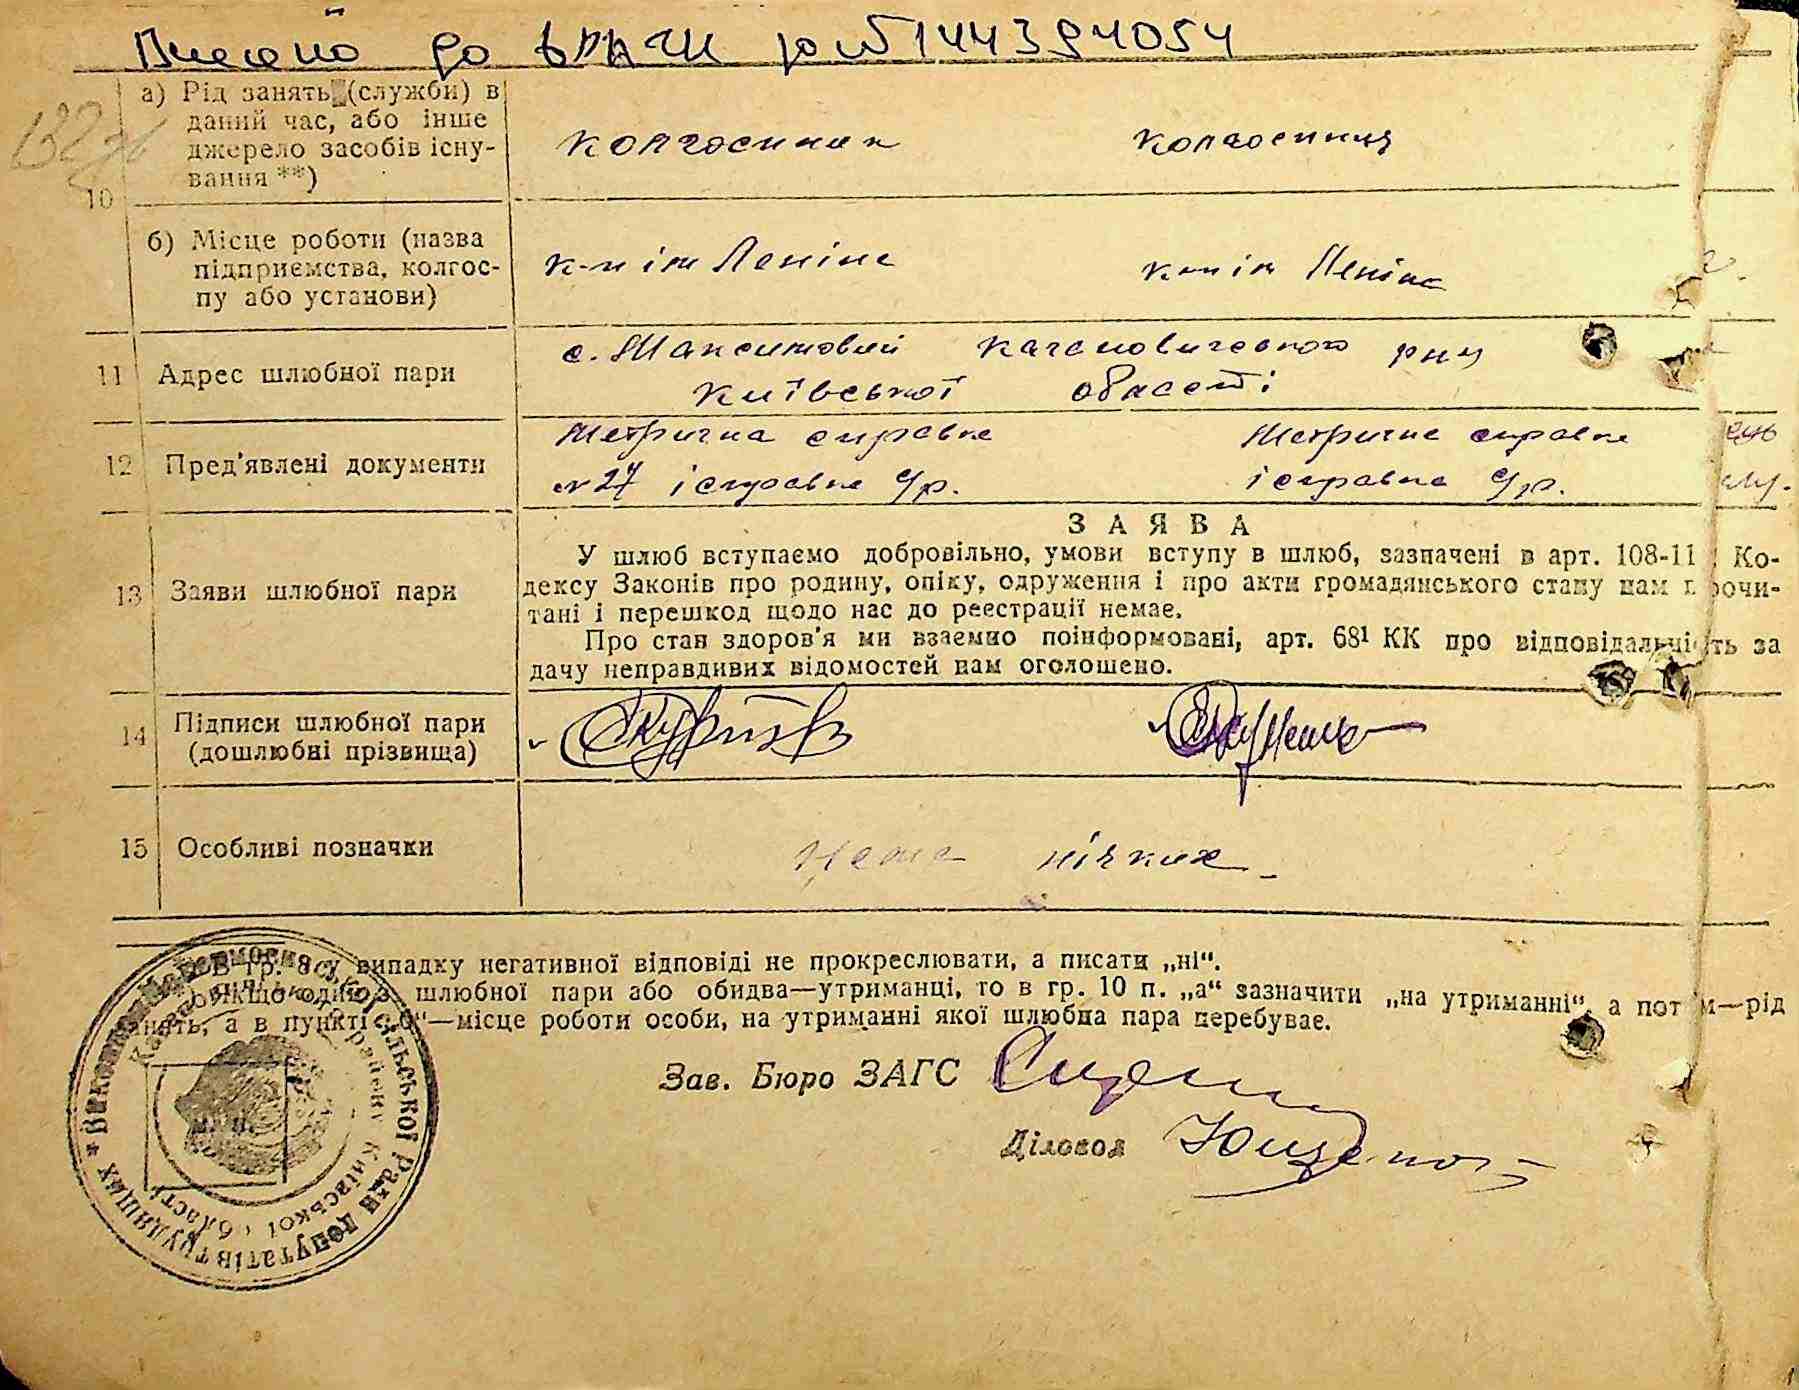 Внесено до ДРАЦС 00144394054
а) Рід занять (служби) в
даний час, або інше
джерело засобів існу-
вання **)
10
колгоспник колгоспниця
б) Місце роботи (назва
підприємства, колгос-
пу або установи)
к-п ім Леніна к-п ім Леніна
11 Адрес шлюбної пари
с. Максимовичі Кагановичевського р-ну
Київської області
12 Пред'явлені документи
Метрична справка Метрична справка
№ 27 і справка с/р. і справка с/р.
13 Заяви шлюбної пари
ЗАЯВА
У шлюб вступаємо добровільно, умови вступу в шлюб, зазначені в арт. 108-11 Ко-
дексу Законів про родину, опіку, одруження і про акти громадянського стану нам прочи-
тані і перешкод щодо нас до реєстрації немає.
Про стан здоров'я ми взаємно поінформовані, арт. 68¹ КК про відповідальність за
дачу неправдивих відомостей нам оголошено.
14 Підписи шлюбної пари
(дошлюбні прізвища)
15 Особливі позначки
нема ніяких
В гр. 8 у випадку негативної відповіді не прокреслювати, а писати „ні“.
Якщо один з шлюбної пари або обидва—утриманці, то в гр. 10 п. „а“ зазначити „на утриманні“, а потім—рід
занять, а в пункті „б“—місце роботи особи, на утриманні якої шлюбна пара перебуває.
Зав. Бюро ЗАГС
Діловод Ющенко
* Виконавчий комітет сільської Ради депутатів трудящих
району Київської області